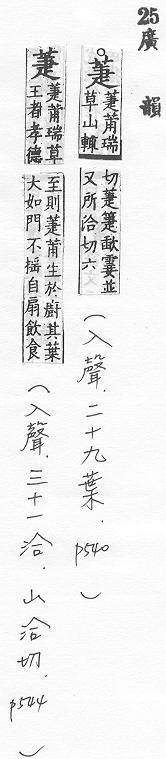 25廣韻
。萐 萐莆瑞
草山輒
切萐箑歃霎並
又所洽切六
(入聲.二十九葉.p540)
萐 萐莆瑞草
王者孝德
至則萐莆生於廚其葉
大如門不搖自扇飲食
(入聲.三十一洽.山洽切.p544)